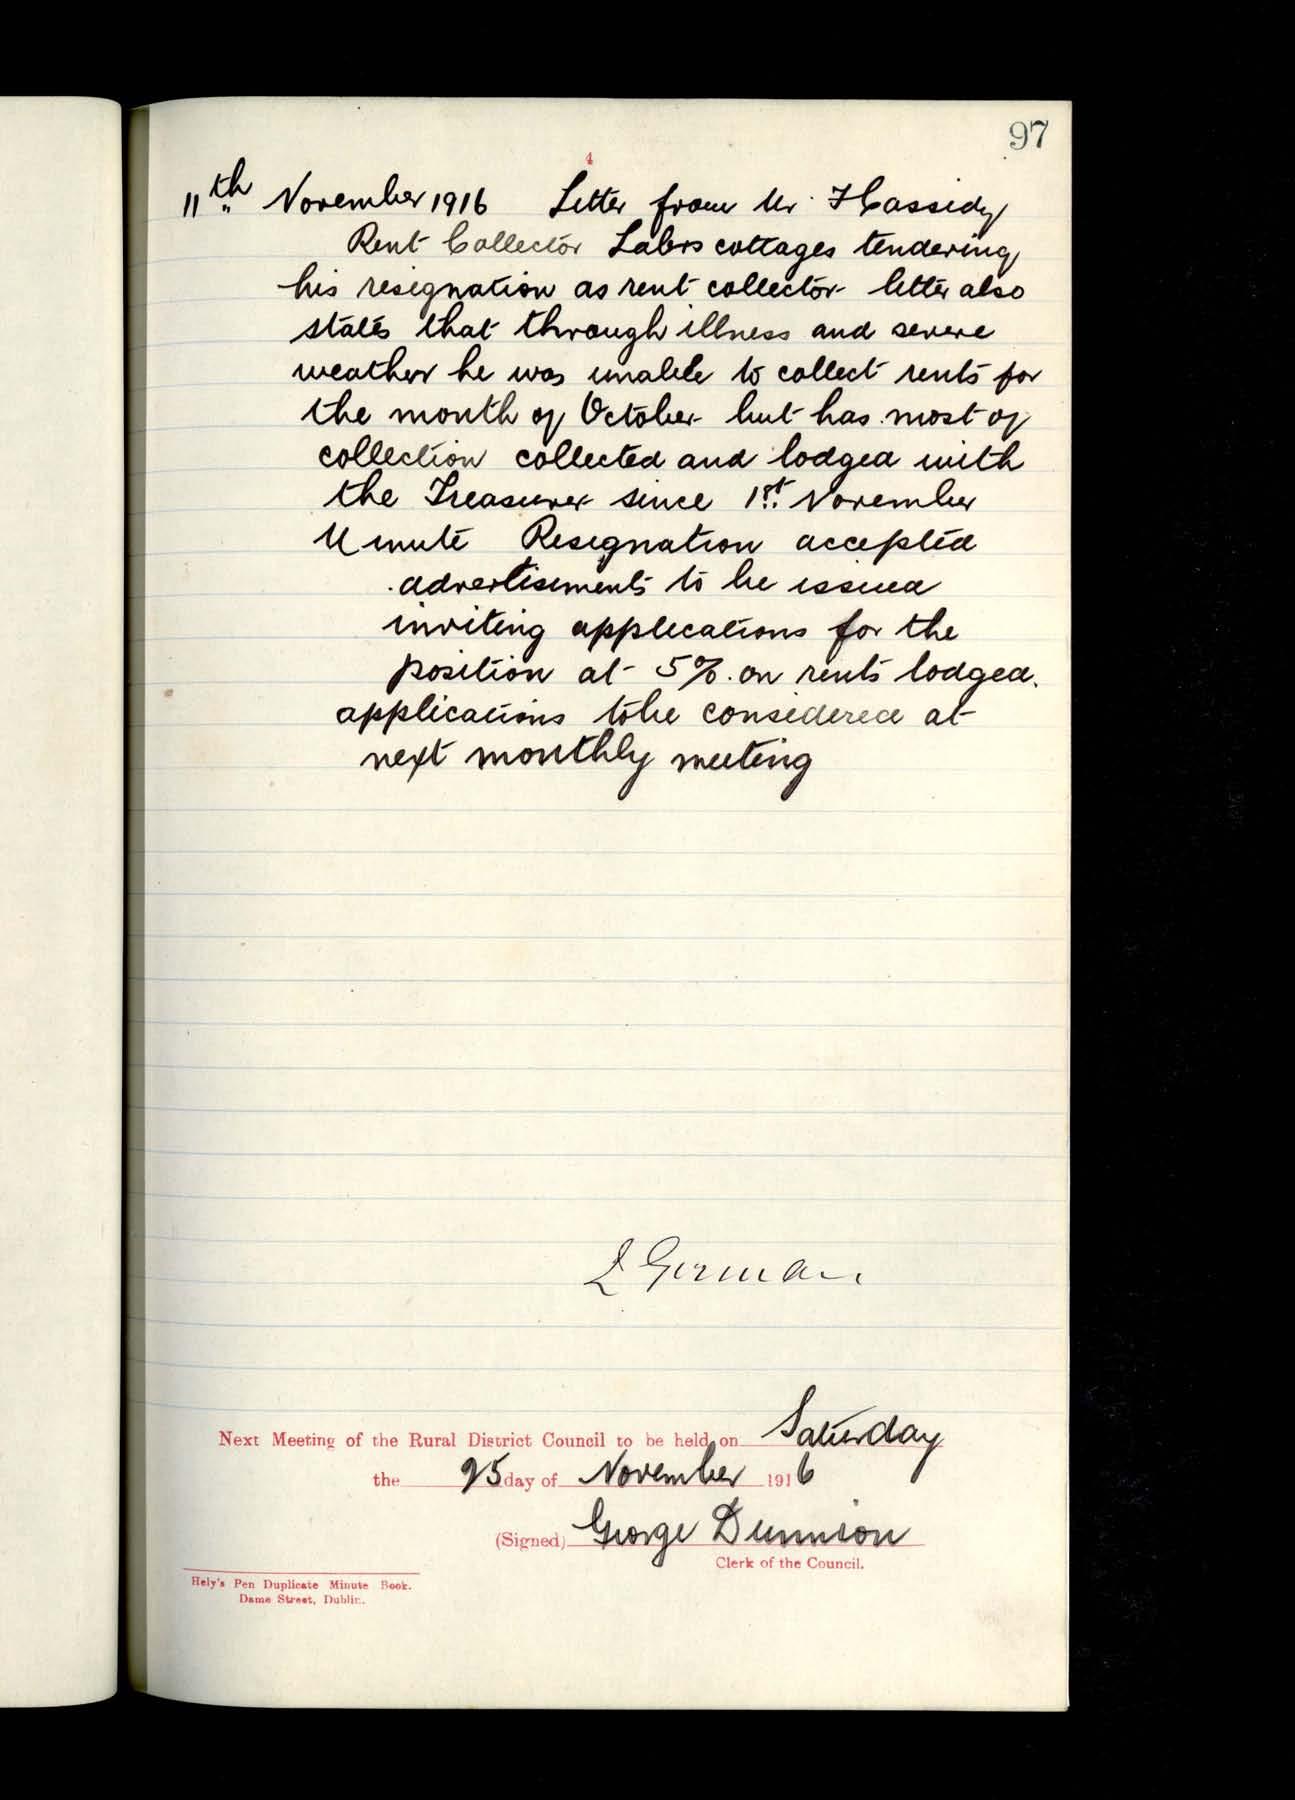 97
4
11th November 1916 Letter from Mr Hassidy
Rent Collector Labrs cottages tendering
his resignation as rent collector letter also
states that through illness and severe
weather he was unable to collect rents for
the month of October but has most of
collection collected and lodged with
the Treasurer since 1st November
Minute Resignation accepted
advertisements to be issued
inviting applications for the
position at 5%. on rents lodged.
applications to be considered at
next monthly meeting
German
Next Meeting of the Rural District Council to be held on Saturday
the 25 day of November 1916
(Signed) George Dunnion
Clerk of the Council.
Hely's Pen Duplicate Minute Book.
Dame Street, Dublin.